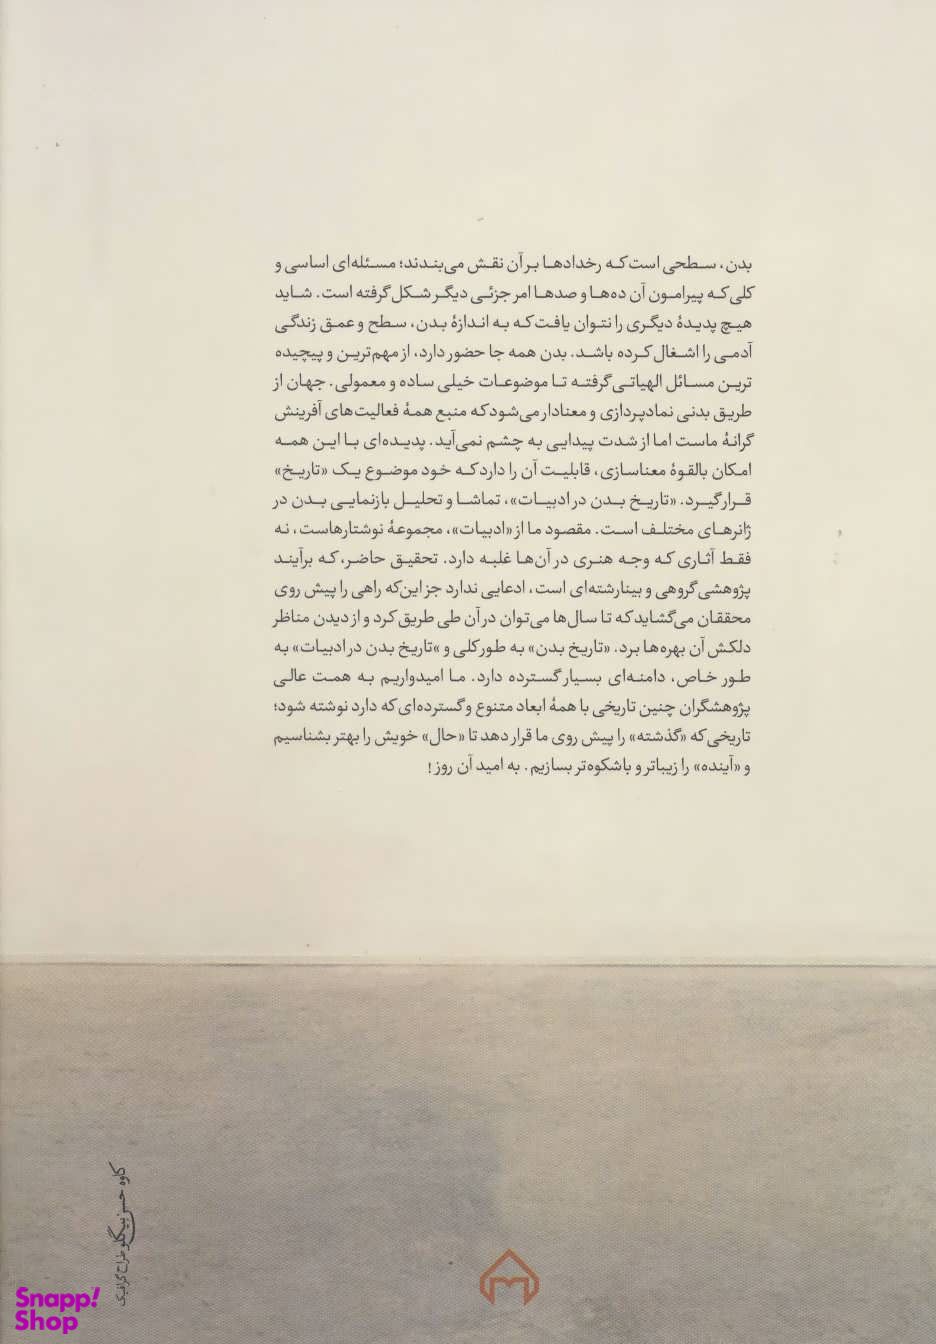 بدن، سطحی است که رخدادها بر آن نقش می‌بندند؛ مسئله‌ای اساسی و
کلی که پیرامون آن ده‌ها و صدها امر جزئی دیگر شکل گرفته است. شاید
هیچ پدیدهٔ دیگری را نتوان یافت که به اندازهٔ بدن، سطح و عمق زندگی
آدمی را اشغال کرده باشد. بدن همه جا حضور دارد، از مهم‌ترین و پیچیده
ترین مسائل الهیاتی گرفته تا موضوعات خیلی ساده و معمولی. جهان از
طریق بدنی نمادپردازی و معنادار می‌شود که منبع همهٔ فعالیت‌های آفرینش
گرانهٔ ماست اما از شدت پیدایی به چشم نمی‌آید. پدیده‌ای با این همه
امکان بالقوهٔ معناسازی، قابلیت آن را دارد که خود موضوع یک «تاریخ»
قرار گیرد. «تاریخ بدن در ادبیات»، تماشا و تحلیل بازنمایی بدن در
ژانرهای مختلف است. مقصود ما از «ادبیات»، مجموعهٔ نوشتارهاست، نه
فقط آثاری که وجه هنری در آن‌ها غلبه دارد. تحقیق حاضر، که برآیند
پژوهشی گروهی و بینارشته‌ای است، ادعایی ندارد جز این‌که راهی را پیش روی
محققان می‌گشاید که تا سال‌ها می‌توان در آن طی طریق کرد و از دیدن مناظر
دلکش آن بهره‌ها برد. «تاریخ بدن» به طور کلی و »تاریخ بدن در ادبیات» به
طور خاص، دامنه‌ای بسیار گسترده دارد. ما امیدواریم به همت عالی
پژوهشگران چنین تاریخی با همهٔ ابعاد متنوع و گسترده‌ای که دارد نوشته شود؛
تاریخی که «گذشته» را پیش روی ما قرار دهد تا «حال» خویش را بهتر بشناسیم
و «آینده» را زیباتر و باشکوه‌تر بسازیم. به امید آن روز!
کاوه حسن بیگلو طراح گرافیک
Snapp!
Shop